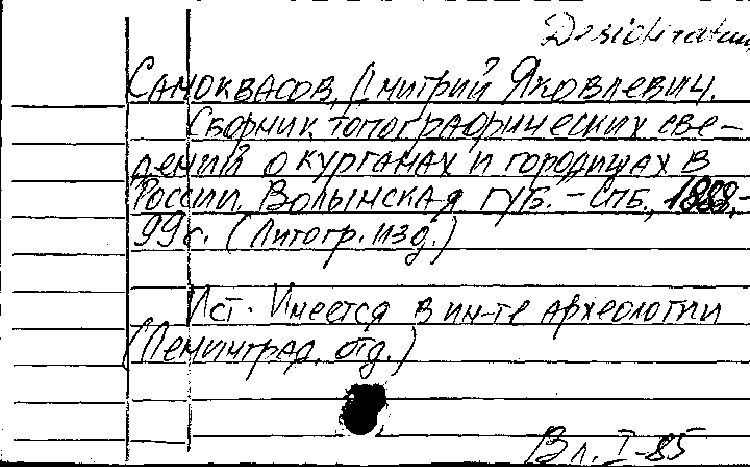 Desideratum
Самоквасов, Дмитрий Яковлевич.
Сборник топографических све-
дений о курганах и городищах в
России. Волынская губ. - Спб., 1888,-
99с. (Литогр. изд.)
Ист. Имеется в ин-те археологии
(Ленинград. отд.)
Вл. I-85